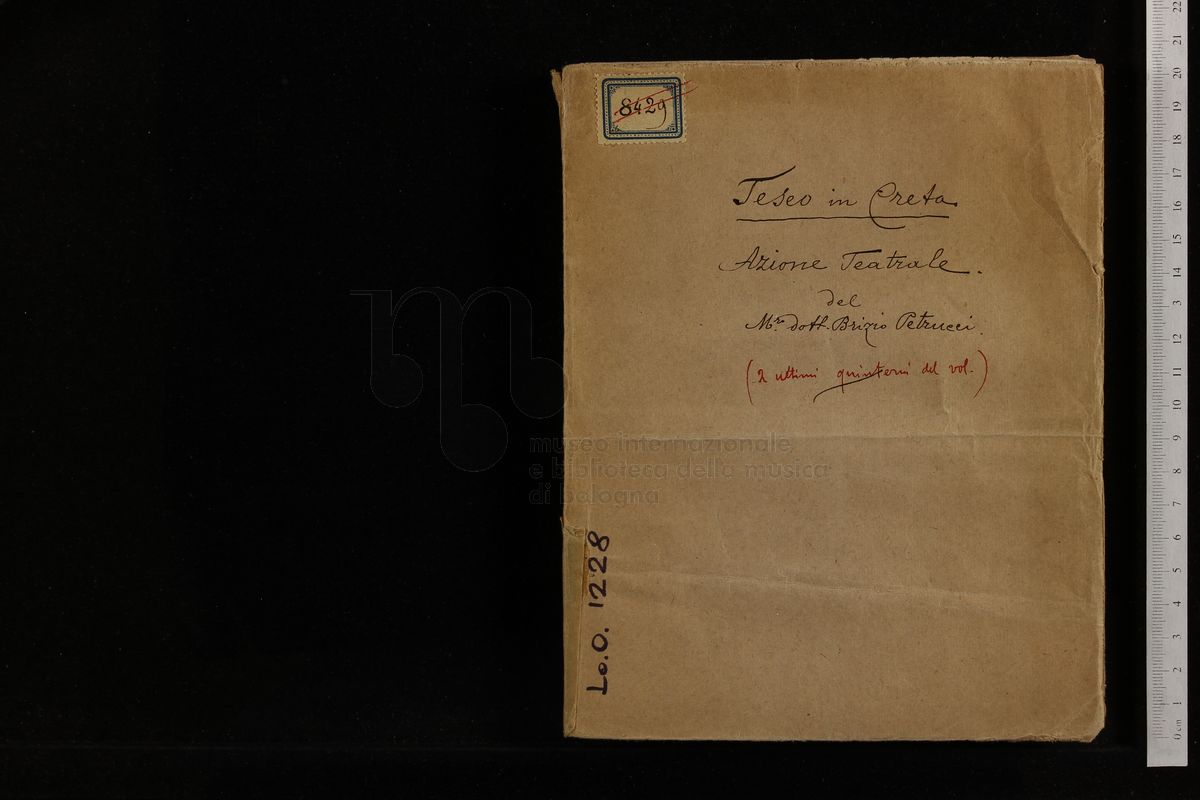 8429
Teseo in Creta
Azione Teatrale.
del
Mro dott. Brizio Petrucci.
(2 ultimi quinterni del vol.)
museo internazionale
e biblioteca della musica
di bologna
Lo.O. 1228
22
21
20
19
18
17
16
15
14
13
12
11
10
9
8
7
6
5
4
3
2
1
0 cm